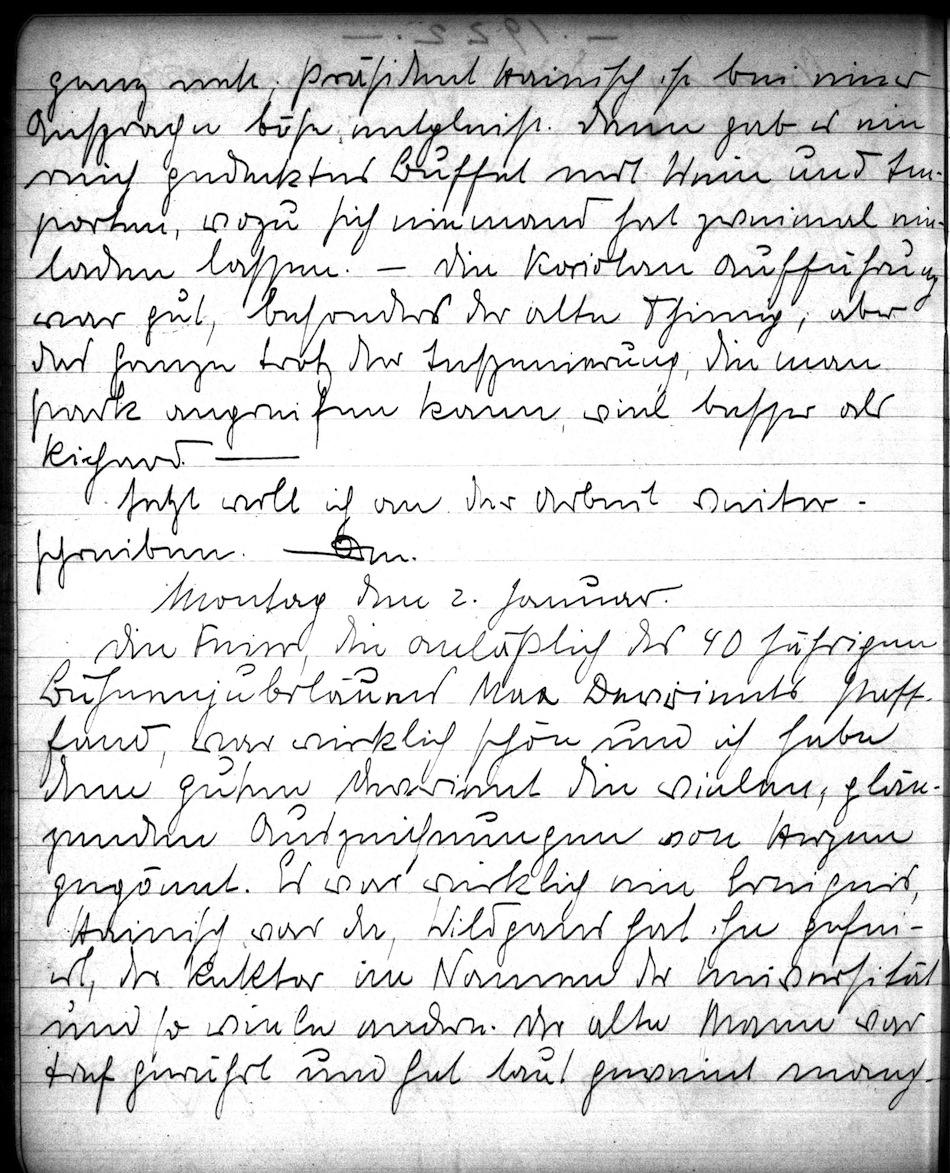 ganz nett. Präsident Hainisch ist bei einer
Ansprache böse entgleist. Dann gab es ein
reich gedecktes Buffet mit Wein und Im-
porten, wozu sich niemand hat zweimal ein-
laden lassen. — Die Koriolan Aufführung
war gut, besonders der alte Thimig, aber
das Ganze trotz der Inszenierung, die man
stark angreifen kann, viel besser als
Richard. —
Jetzt will ich an der Arbeit weiter-
schreiben. —
Montag den 2. Januar.
Die Feier, die anläßlich des 40 jährigen
Bühnenjubiläums Max Devrients statt-
fand, war wirklich schön und ich habe
dem guten Devrient die vielen, glän-
zenden Auszeichnungen von Herzen
gegönnt. Es war wirklich ein Ereignis,
Hainisch war da, Wildgans hat ihn gefei-
ert, der Rektor im Namen der Universität
und so viele andere. Der alte Mann war
tief gerührt und hat laut geweint manch-